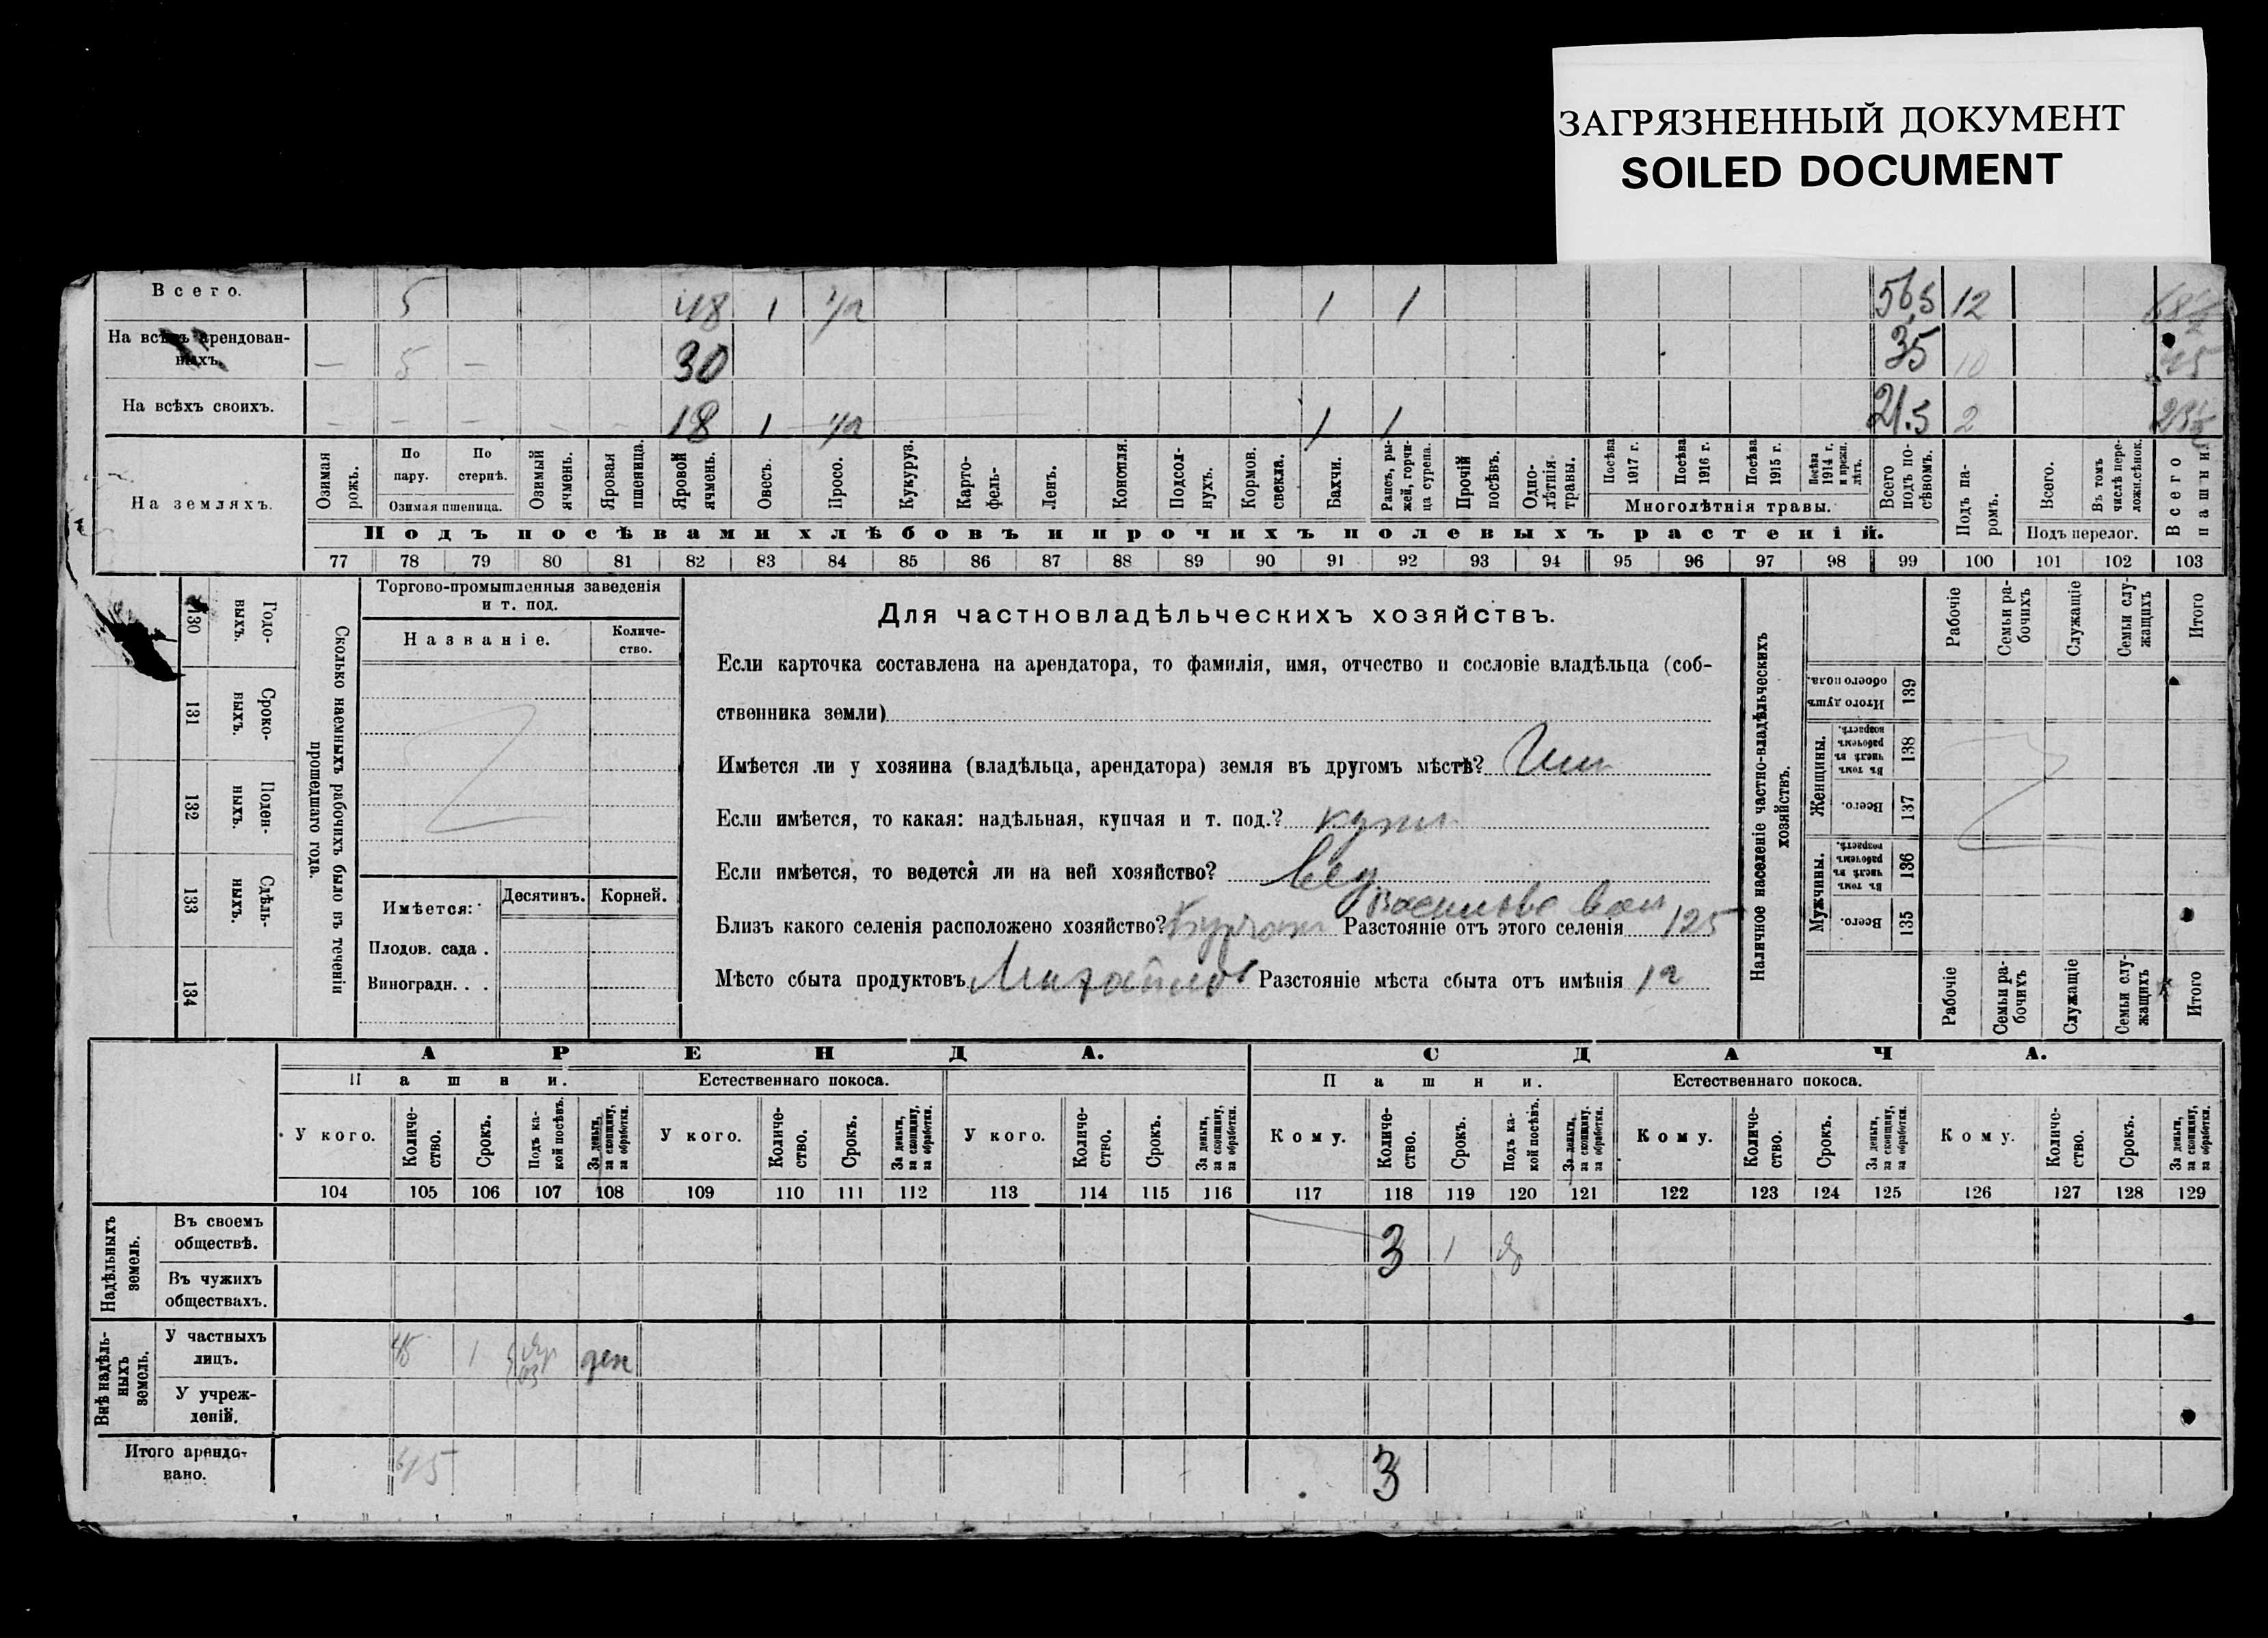 ЗАГРЯЗНЕННЫЙ ДОКУМЕНТ
SOILED DOCUMENT
Всего. 5 48 1 1/2 1 1 56,5 12 68 1/2
На всѣхъ арендованныхъ. — 5 — 30 35 10 45
На всѣхъ своихъ. — — — — — 18 1 1/2 1 1 21.5 2
На земляхъ.
Озимая рожь.
По пару.
По стернѣ.
Озимая пшеница.
Озимый ячмень.
Яровая пшеница.
Яровой ячмень.
Овесъ.
Просо.
Кукуруза.
Картофель.
Ленъ.
Конопля.
Подсолнухъ.
Кормов. свекла.
Бахчи.
Рапсъ, рыжей, горчица сурепа.
Прочій посѣвъ.
Однолѣтнія травы.
Посѣва 1917 г.
Посѣва 1916 г.
Посѣва 1915 г.
Посѣва 1914 г. и прежн. лѣтъ.
Многолѣтнія травы.
Всего подъ посѣвомъ.
Подъ паромъ.
Всего.
Въ томъ числѣ перелож. сѣнок.
Подъ перелог.
Всего пашни.
Подъ посѣвами хлѣбовъ и прочихъ полевыхъ растеній.
77 78 79 80 81 82 83 84 85 86 87 88 89 90 91 92 93 94 95 96 97 98 99 100 101 102 103
130 Годовыхъ.
131 Сроковыхъ.
132 Поденныхъ.
133 Сдѣльныхъ.
134
Сколько наемныхъ рабочихъ было въ теченіи прошедшаго года.
Торгово-промышленныя заведенія
и т. под.
Названіе. Количество.
Имѣется: Десятинъ. Корней.
Плодов. сада .
Виноградн. . .
Для частновладѣльческихъ хозяйствъ.
Если карточка составлена на арендатора, то фамилія, имя, отчество и сословіе владѣльца (соб-
ственника земли)
Имѣется ли у хозяина (владѣльца, арендатора) земля въ другомъ мѣстѣ?
Если имѣется, то какая: надѣльная, купчая и т. под.?
Если имѣется, то ведется ли на ней хозяйство? Вед
Близъ какого селенія расположено хозяйство? Разстояніе отъ этого селенія 125
Мѣсто сбыта продуктовъ Михайлов Разстояніе мѣста сбыта отъ имѣнія 12
Наличное населеніе частно-владѣльческихъ хозяйствъ.
Рабочіе
Семьи рабочихъ
Служащіе
Семьи служащихъ
Итого
Итого душъ обоего пола. 139
Женщины.
Въ томъ числѣ въ рабочемъ возрастѣ. 138
Всего. 137
Мужчины.
Въ томъ числѣ въ рабочемъ возрастѣ. 136
Всего. 135
Рабочіе
Семьи рабочихъ
Служащіе
Семьи служащихъ
Итого
АРЕНДА. СДАЧА.
Пашни. Естественнаго покоса. Пашни. Естественнаго покоса.
У кого. Количество. Срокъ. Подъ какой посѣвъ. За деньги, за скопщину, за обработки.
У кого. Количество. Срокъ. За деньги, за скопщину, за обработки.
У кого. Количество. Срокъ. За деньги, за скопщину, за обработки.
Кому. Количество. Срокъ. Подъ какой посѣвъ. За деньги, за скопщину. за обработки.
Кому. Количество. Срокъ. За деньги, за скопщину, за обработки.
Кому. Количество. Срокъ. За деньги, за скопщину, за обработки.
104 105 106 107 108 109 110 111 112 113 114 115 116 117 118 119 120 121 122 123 124 125 126 127 128 129
Надѣльныхъ земель.
Въ своемъ обществѣ. 3 1 яр
Въ чужихъ обществахъ.
Внѣ надѣльныхъ земель.
У частныхъ лицъ. 45 1 яр оз ден
У учрежденій.
Итого арендовано. 45 3